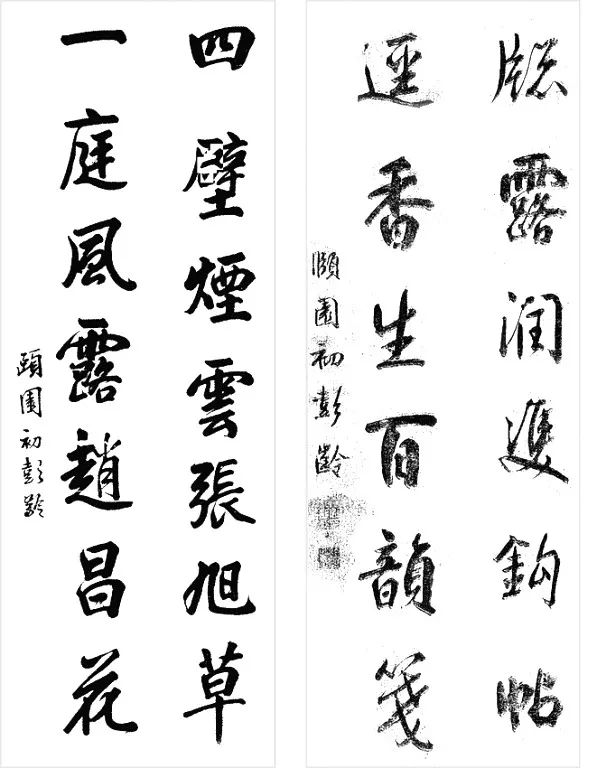 牕露潤雙鈎帖
逕香生百韻箋
頤園初彭齡
四壁煙雲張旭草
一庭風露趙昌花
頤園初彭齡